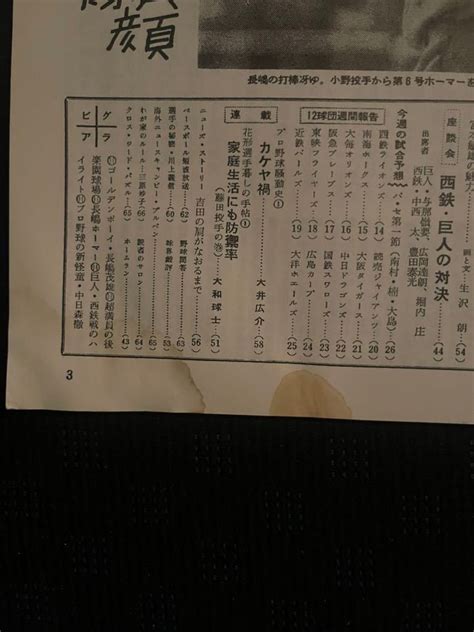 顔
長嶋の打棒冴ゆ。小野投手から第6号ホーマー
画と文・生沢 朗…(54)
座談会
西鉄・巨人の対決……44
出席者
巨人・与那嶺要、広岡達朗、堀内 庄
西鉄・中西 太、豊田泰光
今週の試合予想 パ・セ第一節(南村・楠・大島)…26
12球団週間報告
西鉄ライオンズ…14
南海ホークス…15
大毎オリオンズ…16
阪急ブレーブス…17
東映フライヤーズ…18
近鉄パールズ…19
読売ジャイアンツ…20
大阪タイガース…21
中日ドラゴンズ…22
国鉄スワローズ…23
広島カープ…24
大洋ホエールズ…25
連載
プロ野球騒動史①
カケヤ禍……大井広介…(58)
花形選手暮しの手帖①
家庭生活にも防禦率
(藤田投手の巻)……大和球士…(51)
ニューズ・ストーリー 吉田の肩がなおるまで…(56)
ベースボール短波放送…(62)
選手の秘密・川上哲治…(60)
海外ニュースキャンピー・アルバンペン…(55)
わが家のルール・三原脩子…(66)
クロス・ワード・パズル…(65)
野球問答…(63)
球体鋭評…(53)
読者のサロン…(64)
ホームラン…(43)
グラビア
ゴールデンボーイ・長嶋茂雄 超満員の後
楽園球場 長嶋ホーマー 巨人・西鉄戦のハ
イライト プロ野球の新怪童・中日森徹
3